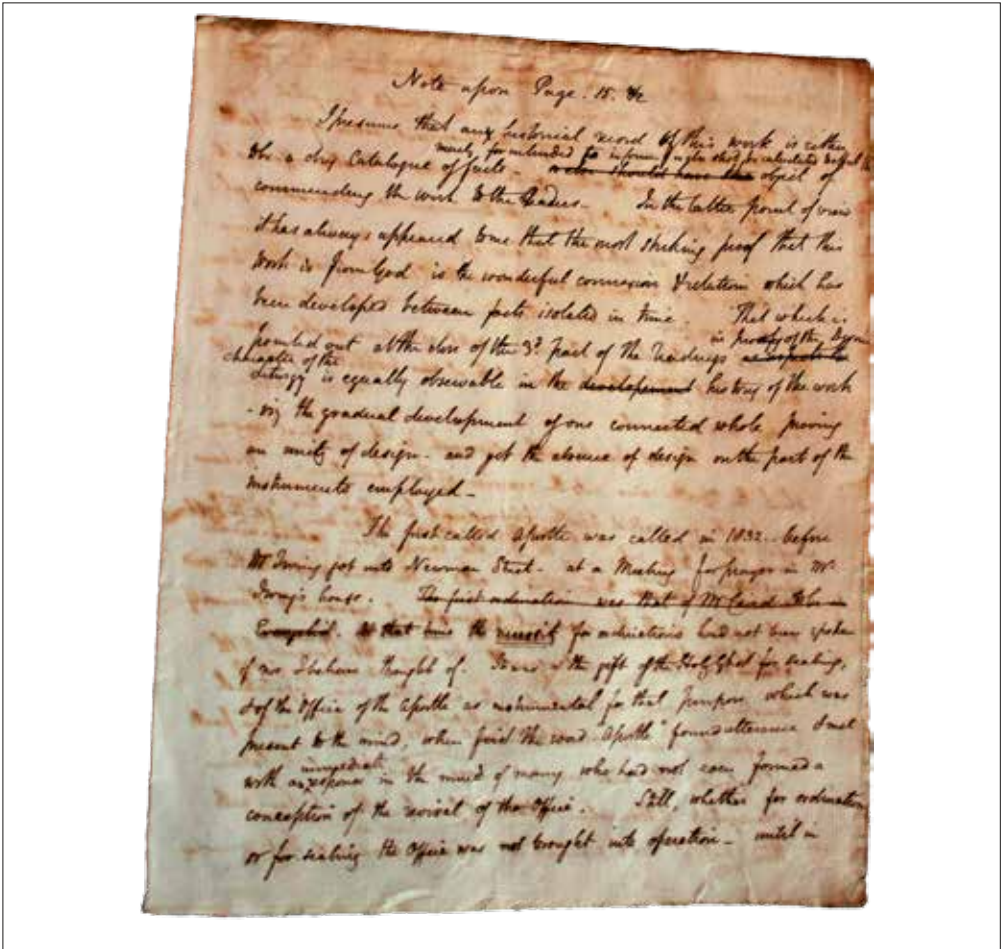 Note upon Page. 15. &c
I presume that any historical record of this work is either
merely for intended to inform, or
the a dry Catalogue of facts - object of
commending the work to the Readers. In the latter point of view
it has always appeared to me that the most striking proof that this
work is from God is the wonderful connexion & relation which has
been developed between facts isolated in time. That which is
in proof of the
pointed out at the close of the 3d. part of the Readings
character of the
Liturgy is equally observable in the development history of the work
- viz the gradual development of one connected whole proving
an unity of design - and yet the absence of design on the part of the
instruments employed -
The first called Apostle was called in 1832 - before
Mr Irving got into Newman Street - at a Meeting for prayer in Mr
Irving's house. The first ordination was that of Mr Caird to be
Evangelist. At that time the necessity for ordinations had not been spoken
of nor I believe thought of. It was the gift of the Holy Ghost for sealing,
& of the Office of the Apostle as instrumental for that purpose which was
present to the mind, when first the word "Apostle" found utterance & met
immediate
with a response in the mind of many, who had not even formed a
conception of the revival of the Office. Still, whether for ordination
or for sealing the Office was not brought into operation - until in